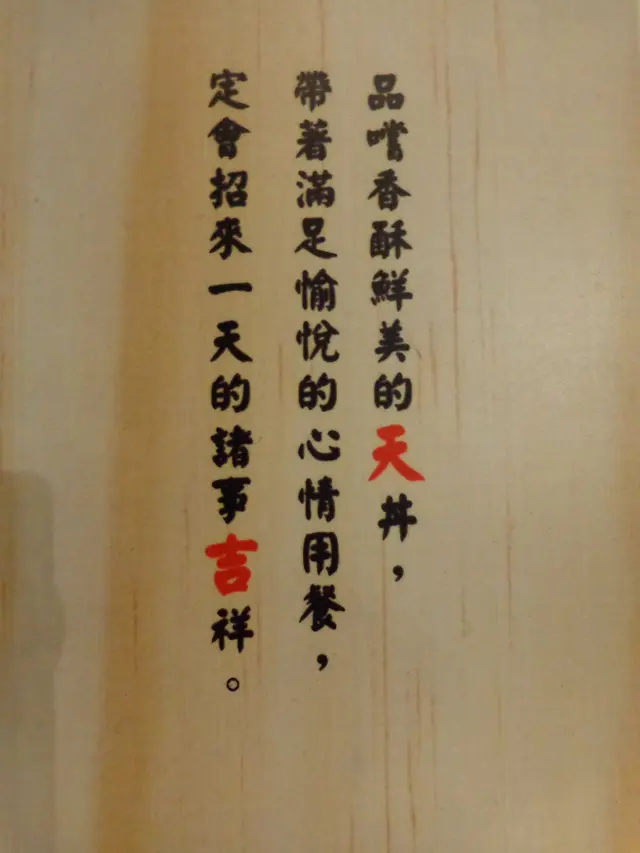 品嚐香酥鮮美的天丼，
帶著滿足愉悅的心情用餐，
定會招來一天的諸事吉祥。